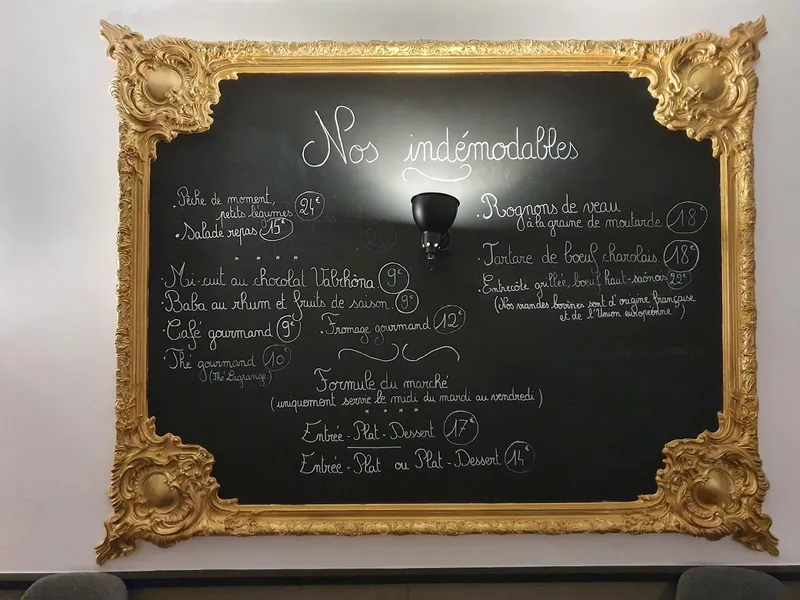 Nos indémodables
Pêche de moment,
petits légumes 24€
• Salade repas 15€
* * * *
• Mi-cuit au chocolat Valrhôna 9€
• Baba au rhum et fruits de saison 9€
• Café gourmand 9€
• Fromage gourmand 12€
• Thé gourmand 10€
(Thé Lagrange)
• Rognons de veau
à la graine de moutarde 18€
• Tartare de bœuf charolais 18€
• Entrecôte grillée bœuf haut-saônois 22€
(Nos viandes bovines sont d'origine française
et de l'Union européenne)
Formule du marché
(uniquement servie le midi du mardi au vendredi)
* * * *
Entrée - Plat - Dessert 17€
Entrée - Plat ou Plat - Dessert 14€